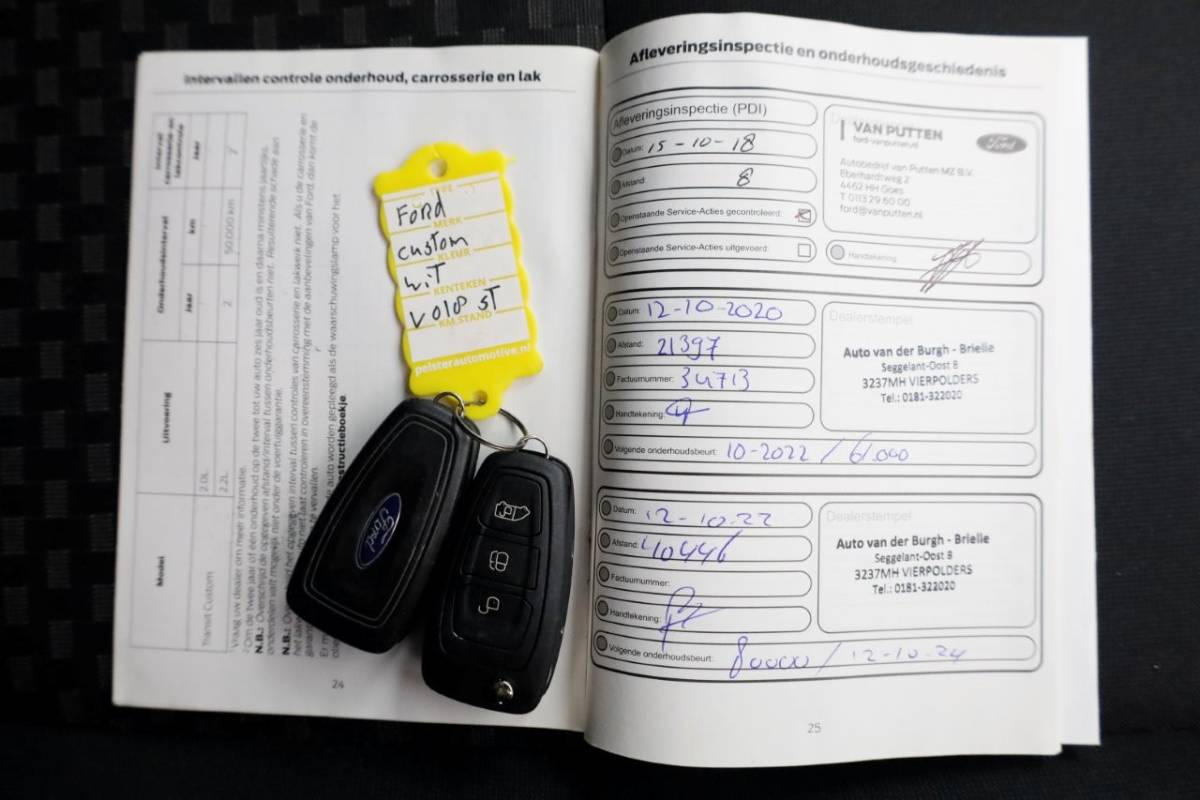 Intervallen controle onderhoud, carrosserie en lak
Model
Uitvoering
Onderhoudsinterval
Interval carrosserie- en lakcontrole
jaar
km
jaar
Transit Custom
2.0L
2.2L
2
50.000 km
1
Vraag uw dealer om meer informatie.
N.B.:
N.B.:
instructieboekje.
24
TYPE
Ford
MERK
custom
KLEUR
wit
KENTEKEN
VOLD ST
KM.STAND
pelsterautomotive.nl
Ford
Afleveringsinspectie en onderhoudsgeschiedenis
Afleveringsinspectie (PDI)
Datum: 15-10-18
Afstand: 8
Openstaande Service-Acties gecontroleerd:
Openstaande Service-Acties uitgevoerd:
VAN PUTTEN
ford-vanputten.nl
Ford
Autobedrijf van Putten MZ B.V.
Eberhardtweg 2
4462 HH Goes
T 0113 29 60 00
ford@vanputten.nl
Handtekening
Datum: 12-10-2020
Afstand: 21397
Factuurnummer: 34713
Handtekening:
Volgende onderhoudsbeurt: 10-2022 / 61.000
Dealerstempel
Auto van der Burgh - Brielle
Seggelant-Oost 8
3237MH VIERPOLDERS
Tel.: 0181-322020
Datum: 12-10-22
Afstand: 40446
Factuurnummer:
Handtekening:
Volgende onderhoudsbeurt: 80000 / 12-10-24
Dealerstempel
Auto van der Burgh - Brielle
Seggelant-Oost 8
3237MH VIERPOLDERS
Tel.: 0181-322020
25